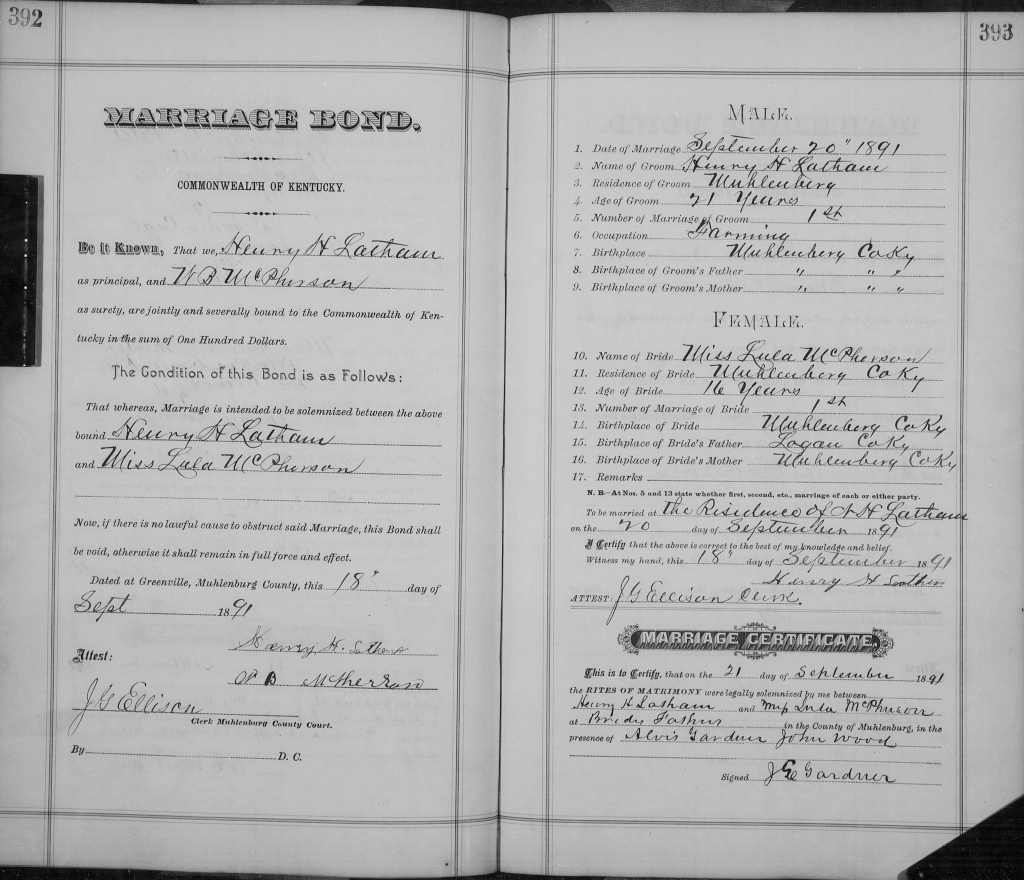 392
MARRIAGE BOND.
COMMONWEALTH OF KENTUCKY.
Be it Known, That we, Henry H Latham
as principal, and W B McPherson
as surety, are jointly and severally bound to the Commonwealth of Ken-
tucky in the sum of One Hundred Dollars.
The Condition of this Bond is as Follows:
That whereas, Marriage is intended to be solemnized between the above
bound Henry H Latham
and Miss Lula McPherson
Now, if there is no lawful cause to obstruct said Marriage, this Bond shall
be void, otherwise it shall remain in full force and effect.
Dated at Greenville, Muhlenburg County, this 18" day of
Sept 1891
Henry H.
Attest:
B
J G Ellison
Clerk Muhlenburg County Court.
By D. C.
393
MALE.
1. Date of Marriage September 20" 1891
2. Name of Groom Henry H Latham
3. Residence of Groom Muhlenberg
4. Age of Groom 21 Years
5. Number of Marriage of Groom 1st
6. Occupation Farming
7. Birthplace Muhlenberg Co Ky
8. Birthplace of Groom's Father " " "
9. Birthplace of Groom's Mother " " "
FEMALE.
10. Name of Bride Miss Lula McPherson
11. Residence of Bride Muhlenberg Co Ky
12. Age of Bride 16 Years
13. Number of Marriage of Bride 1st
14. Birthplace of Bride Muhlenberg Co Ky
15. Birthplace of Bride's Father Logan Co Ky
16. Birthplace of Bride's Mother Muhlenberg Co Ky
17. Remarks
N. B.—At Nos. 5 and 13 state whether first, second, etc., marriage of each or either party.
To be married at the Residence of H Latham
on the 20 day of September 1891
I Certify that the above is correct to the best of my knowledge and belief.
Witness my hand, this 18" day of September 1891
Henry H
ATTEST: J G Ellison Clerk.
MARRIAGE CERTIFICATE.
This is to Certify, that on the 21 day of September 1891
the RITES OF MATRIMONY were legally solemnized by me between
Henry H Latham and Miss Lula McPherson
at Brides Fathers in the County of Muhlenburg, in the
presence of Alvis Gardner John Wood
Signed Gardner